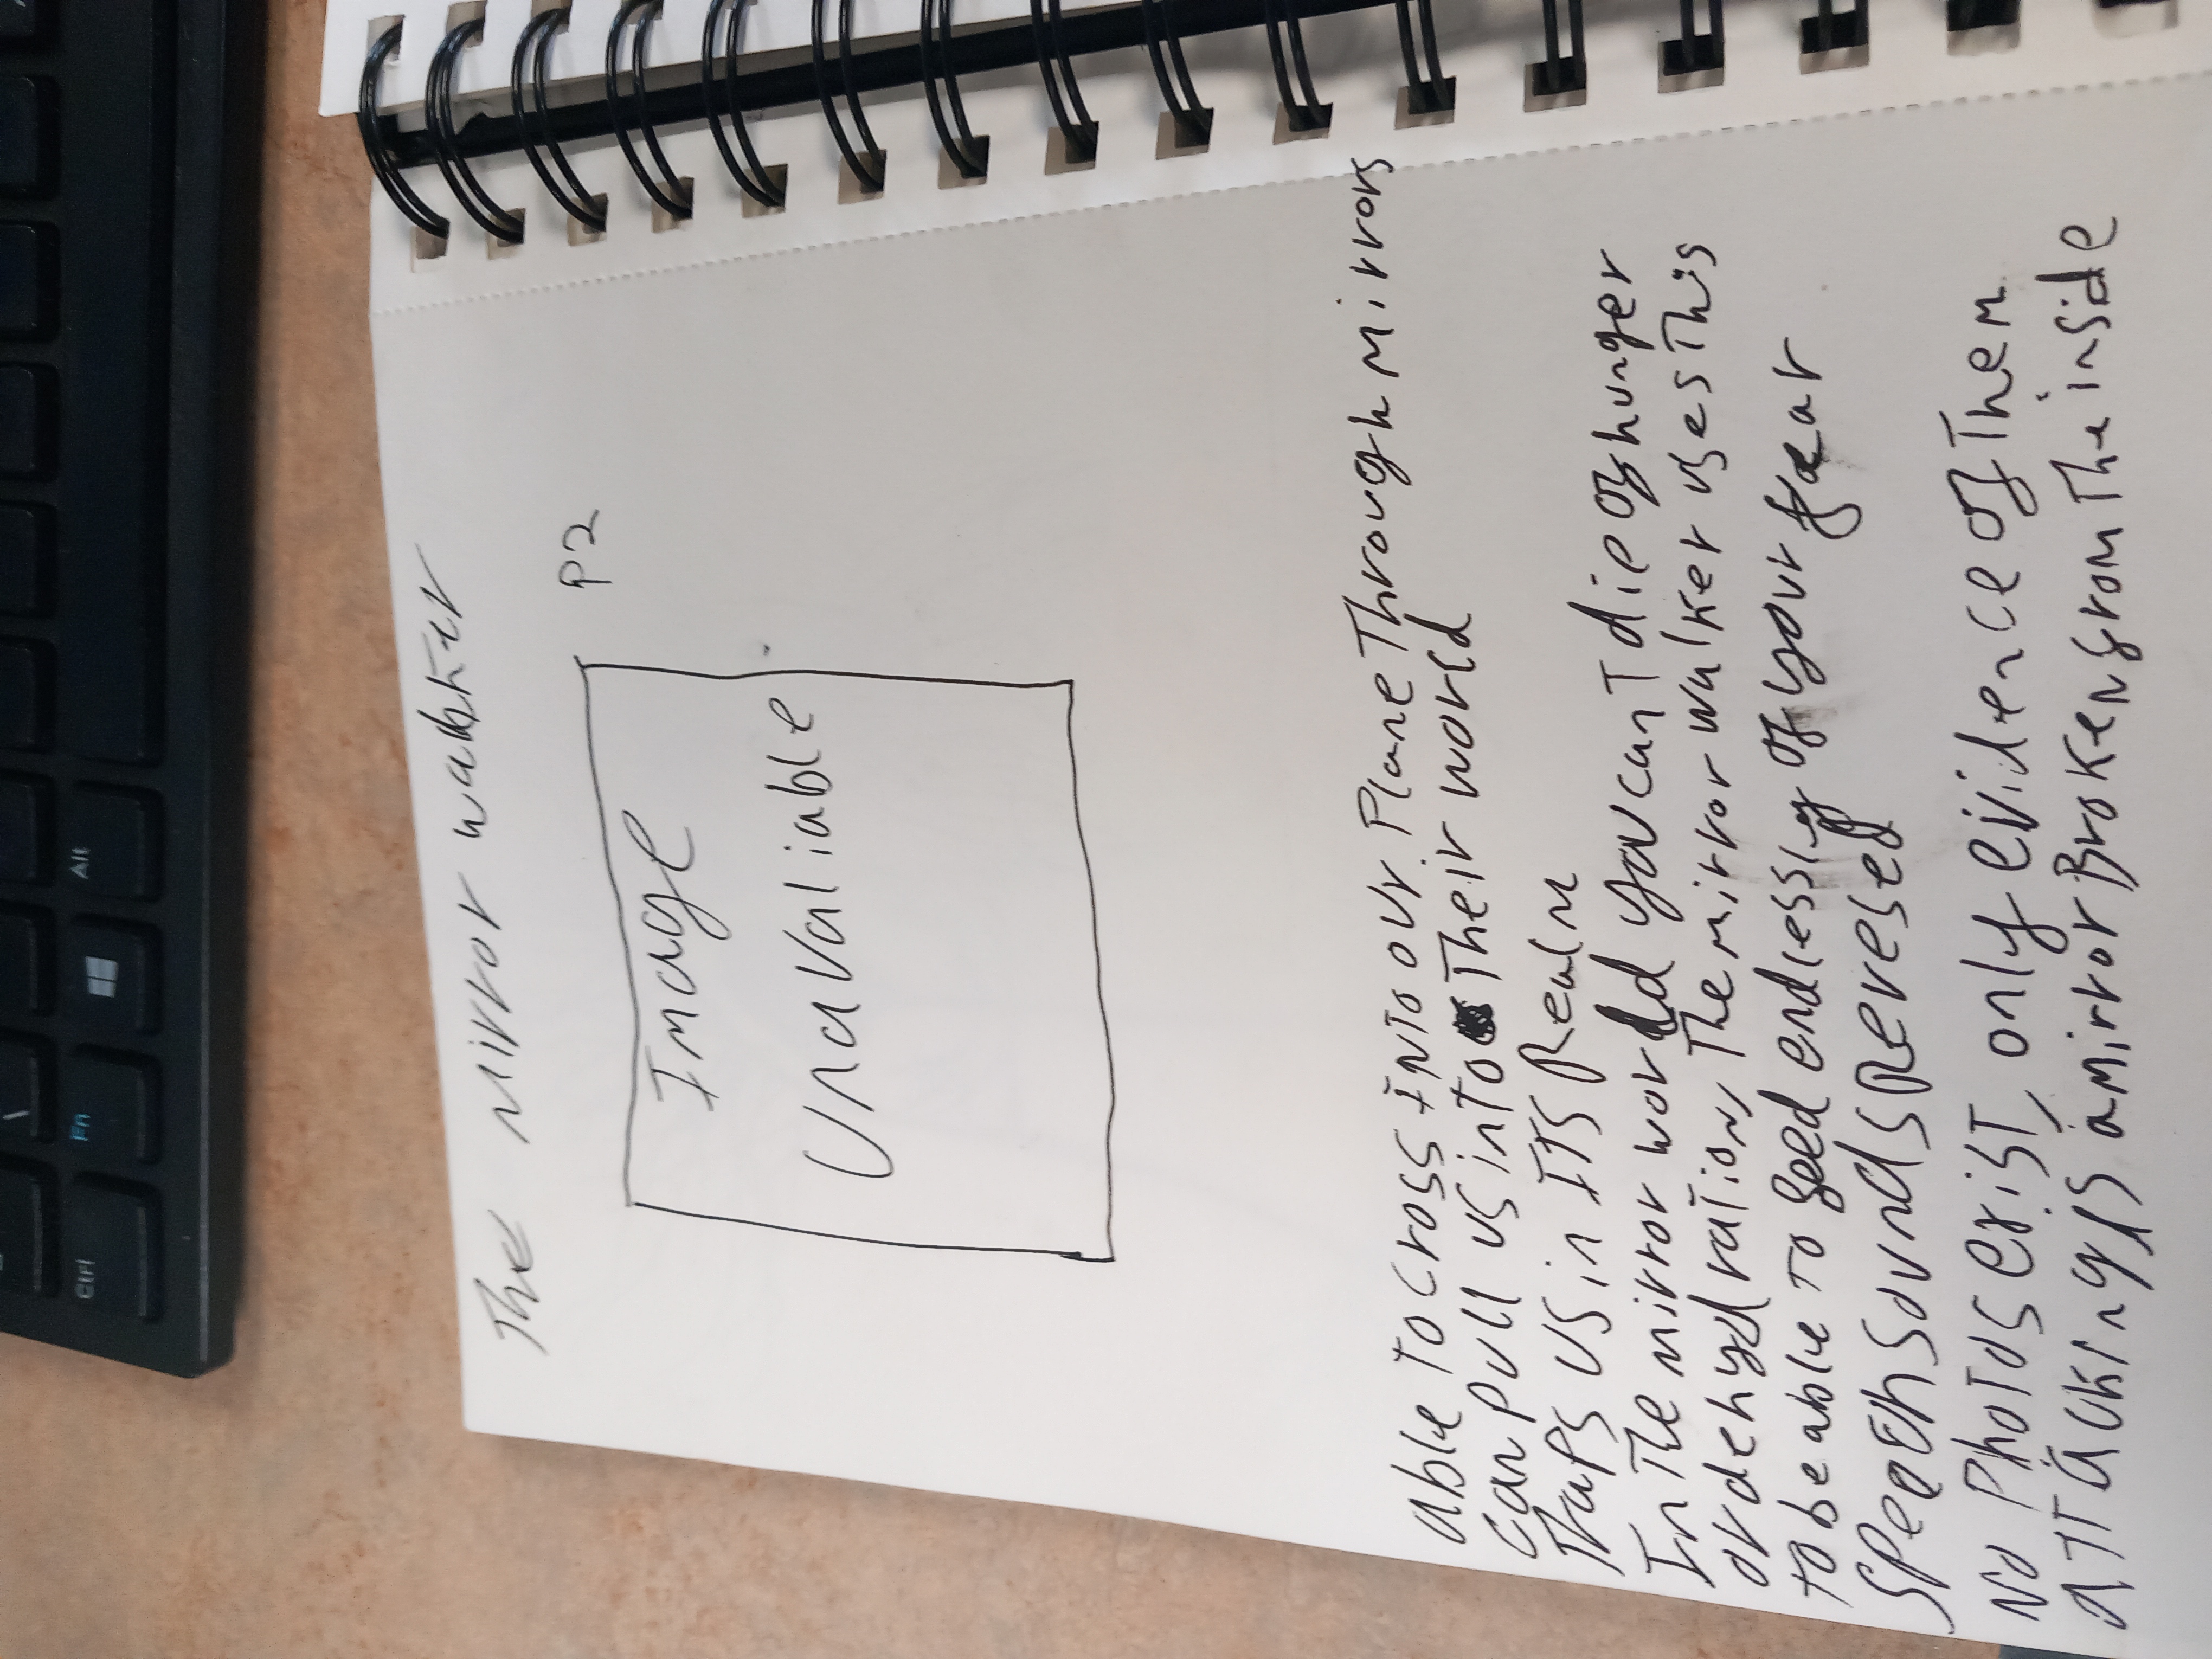 Ctrl Fn Alt
\
The Mirror walker
P2
Image
Unavaliable
able to cross Into our Plane Through mirrors
can pull us into Their world
Traps us in ITS Realm
In The mirror world you can't die of hunger
or dehydration, The mirror walker uses This
to be able to feed endlessly of your fear
speech sounds Reversed
No Photos exist, only evidence of Them
attacking is a mirror Broken from The inside